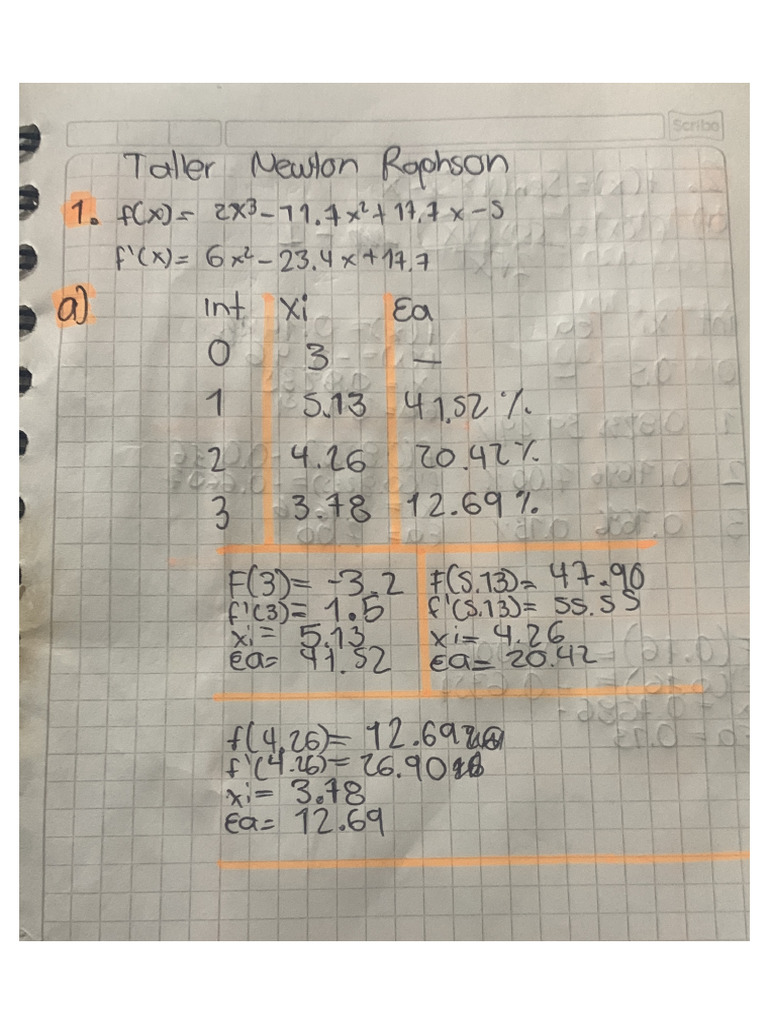 Scribe
Taller Newton Raphson
1. f(x)= 2x³-11.7x²+17,7x-5
f'(x)= 6x²-23.4x+17.7
a) Int Xi Ea
0 3 —
1 5.13 41,52%
2 4.26 20.42%
3 3.78 12.69%
F(3)= -3.2 f(5.13)= 47.90
f'(3)= 1.5 f'(5.13)= 55.55
xi= 5.13 xi= 4.26
Ea= 41.52 Ea= 20.42
f(4,26)= 12.69
f'(4.26)= 26.90
xi= 3.78
Ea= 12.69